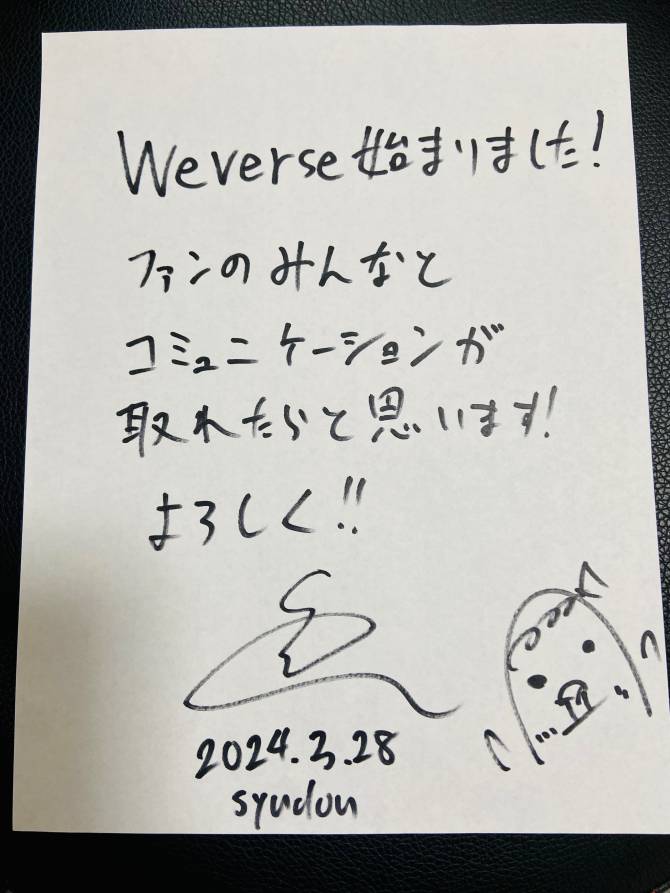 Weverse始まりました!
ファンのみんなと
コミュニケーションが
取れたらと思います!
よろしく!!
2024.3.28
syudou